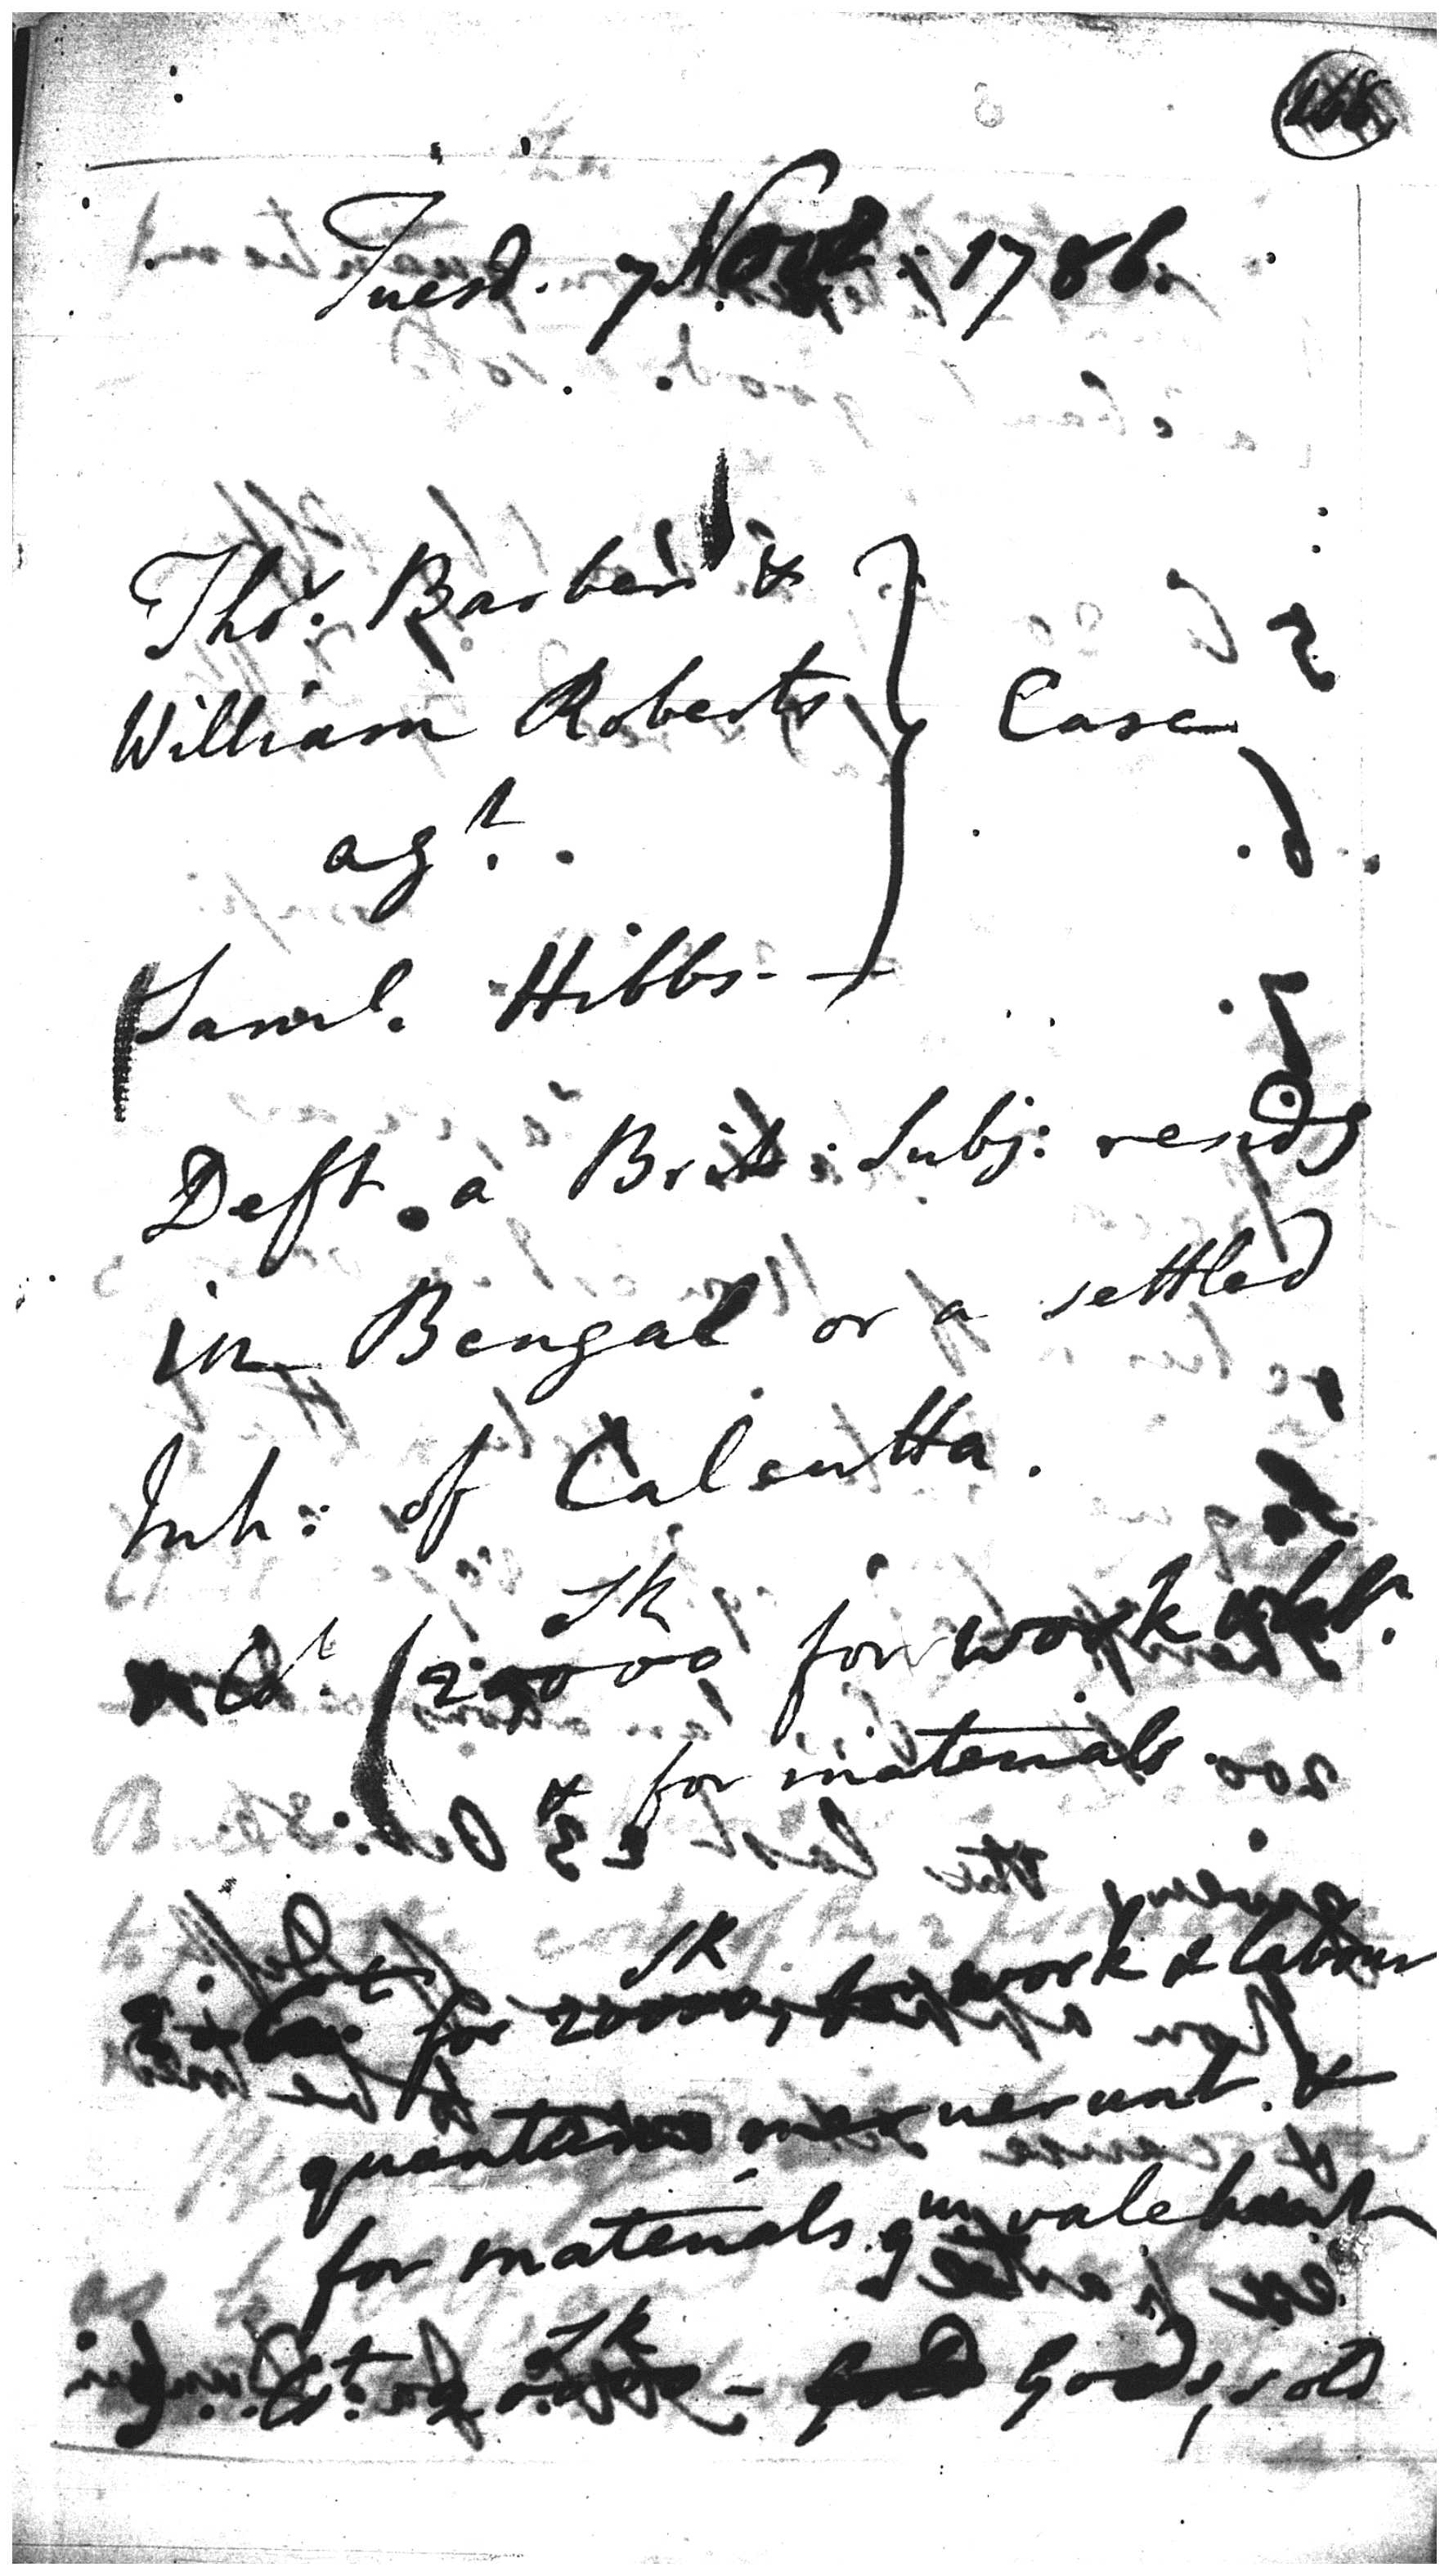 Tuesd. 7 Novr. 1786.
Thos. Barber &
William Roberts
Case
agt.
Saml. Hibbs.
Deft. a Brit: Subj: residg
in Bengal or a settled
Inh: of Calcutta.
SR
Ct. 20000 for work
& for materials.
SR
Ct for 20000, for work & labour
quantum meruerunt. &
for materials qm. valebant
SR
Ct. 20000 - Goods, sold